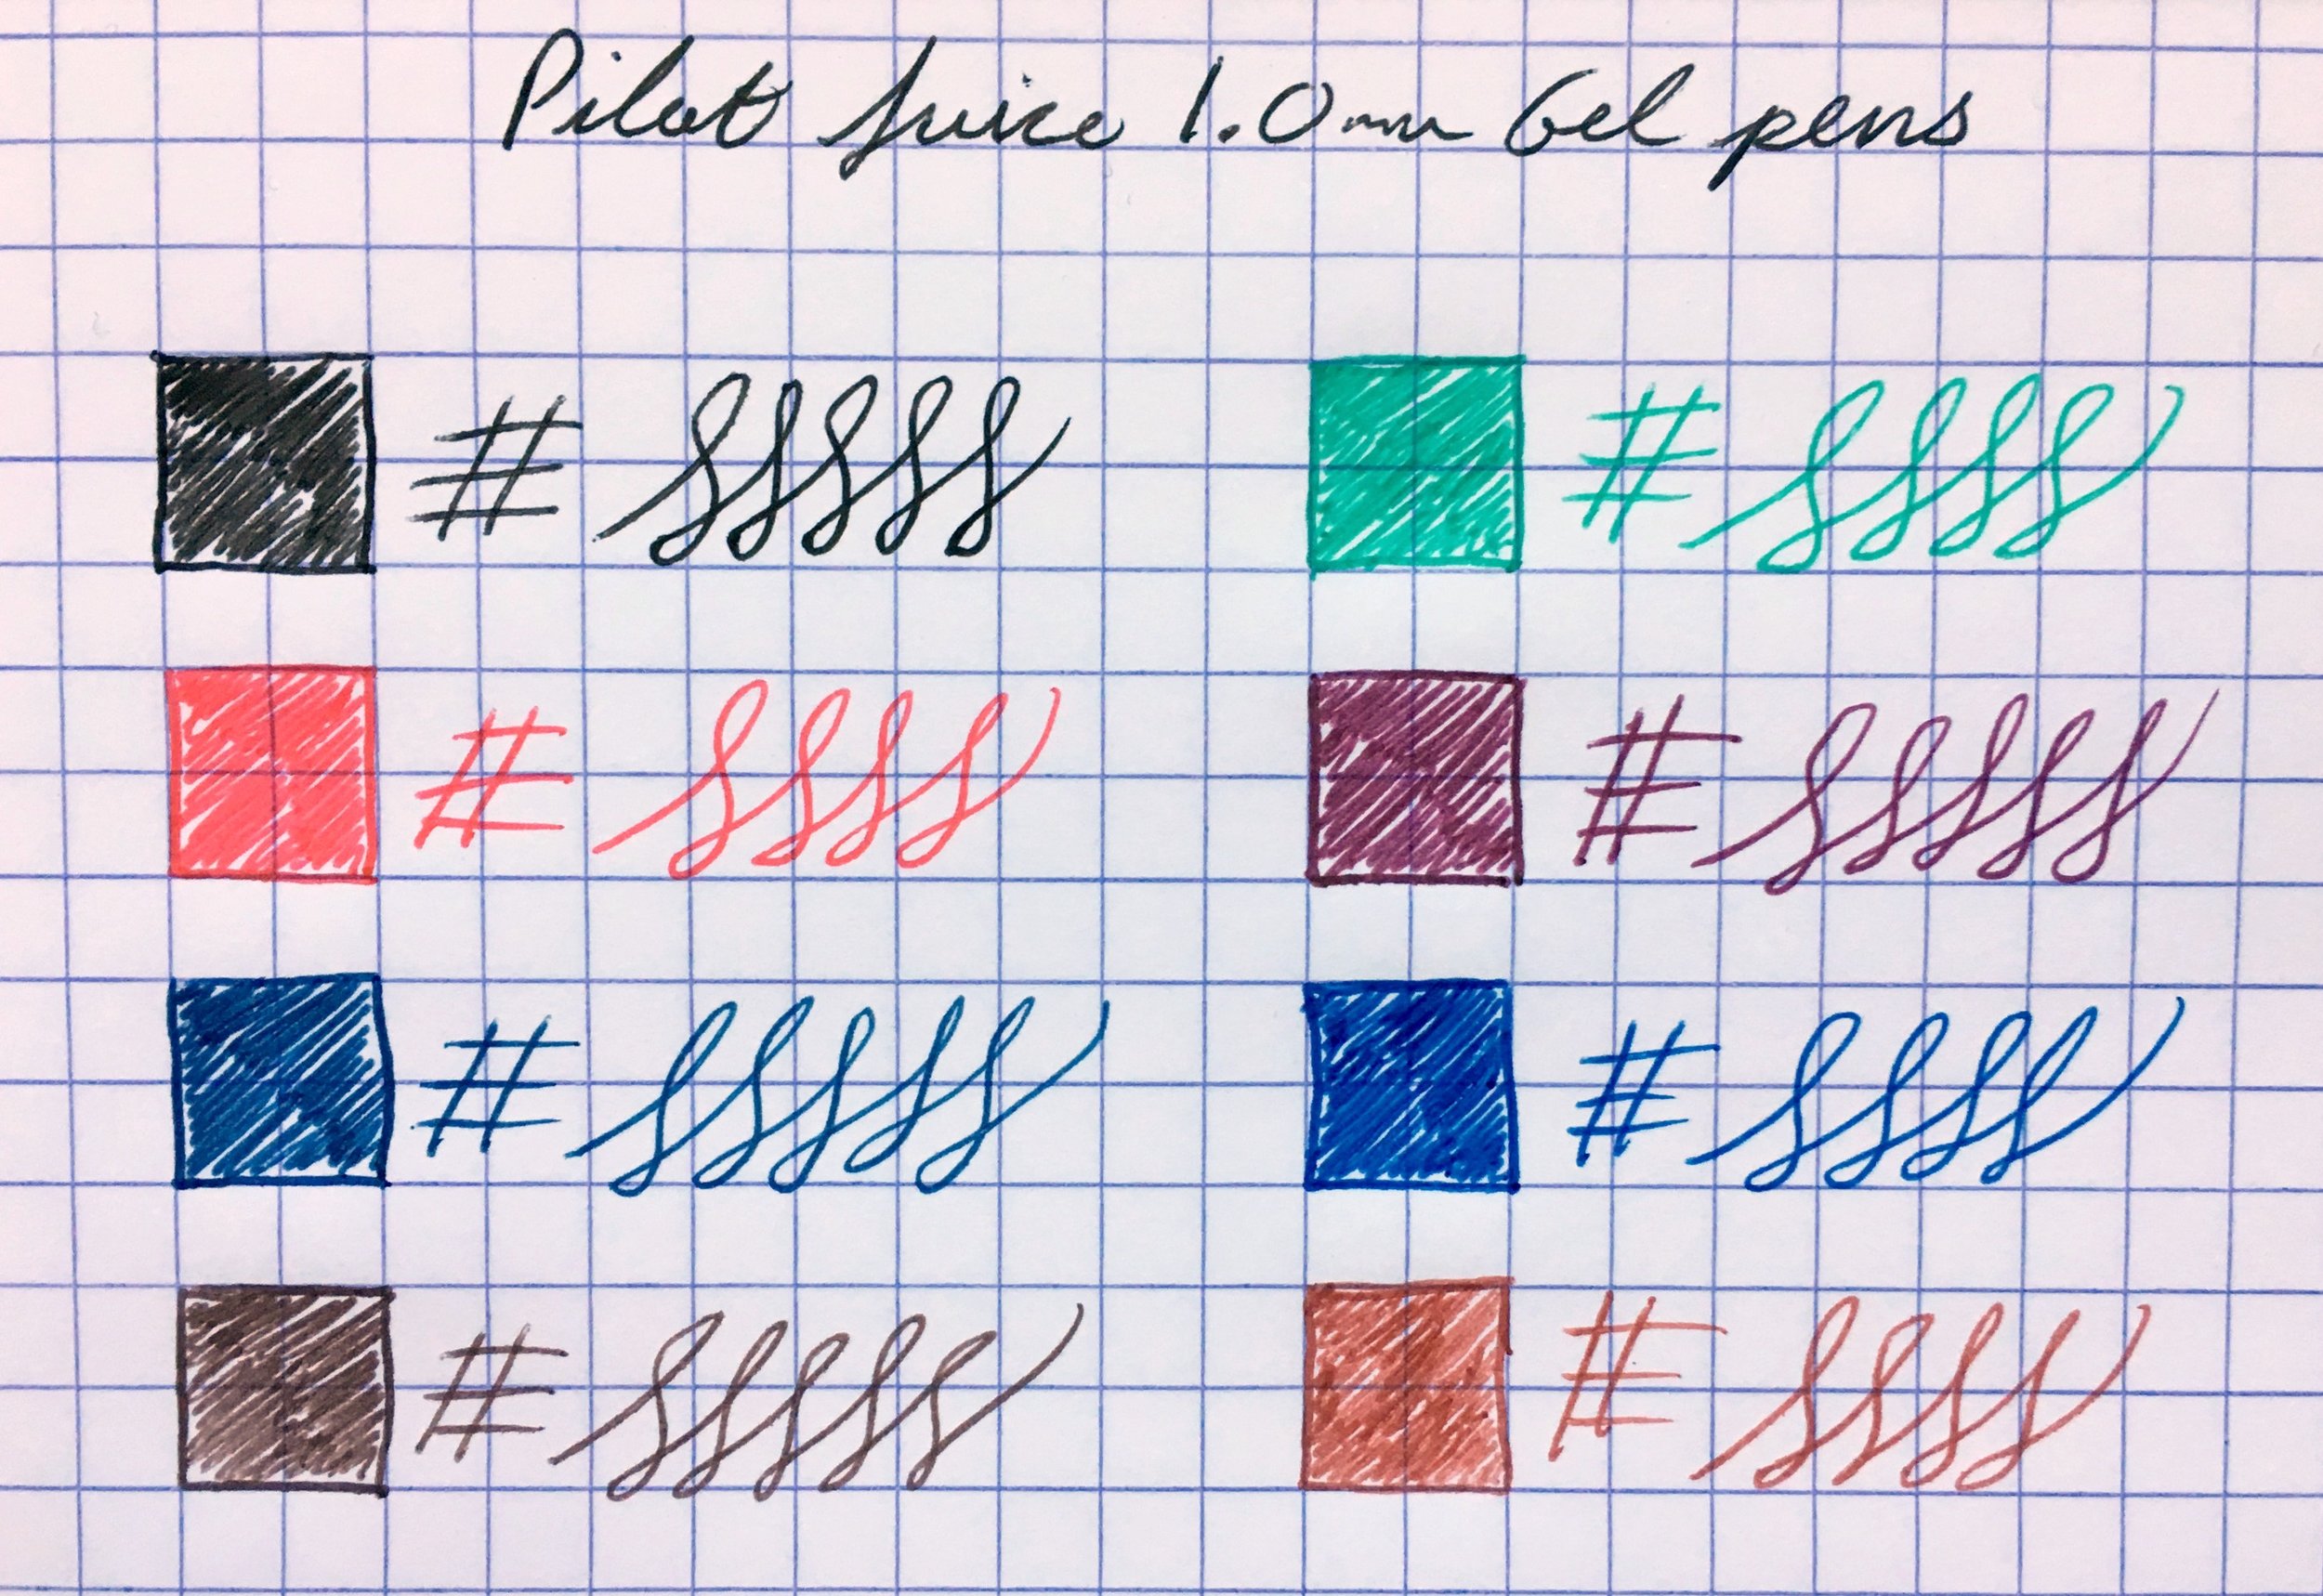 Pilot Juice 1.0mm Gel pens
#
#
#
#
#
#
#
#